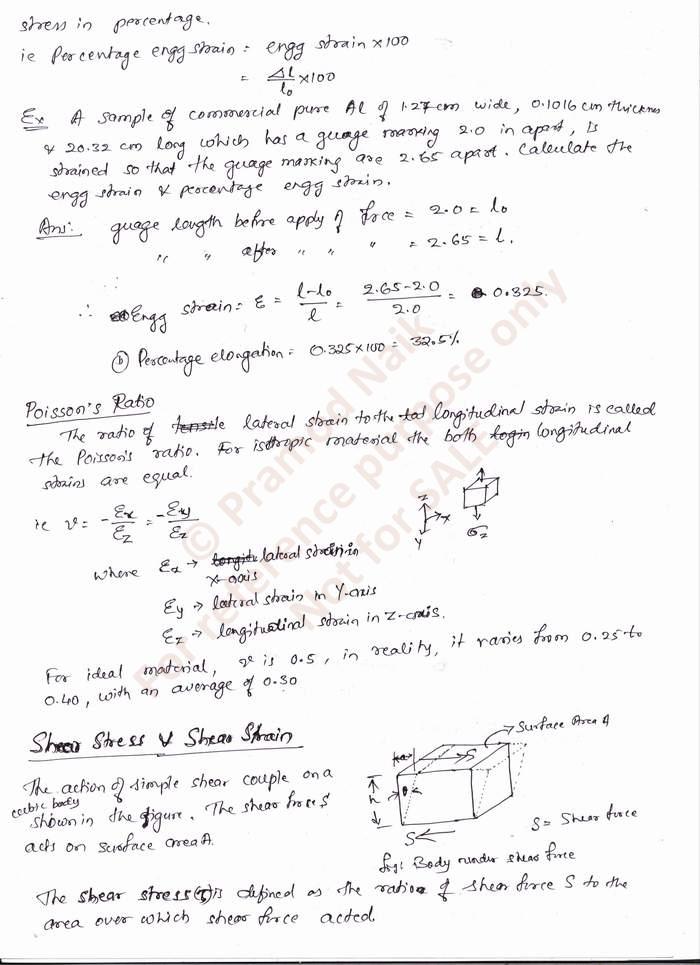 stress in percentage.
ie Percentage engg strain = engg strain × 100
= Δl/l₀ × 100
Ex A sample of commercial pure Al of 1.27 cm wide, 0.1016 cm thickness
& 20.32 cm long which has a guage marking 2.0 in apart, is
strained so that the guage marking are 2.65 apart. Calculate the
engg strain & percentage engg strain.
Ans: guage length before apply of force = 2.0 = l₀
" " after " " " = 2.65 = l.
∴ Engg strain = ε = (l-l₀)/l = (2.65-2.0)/2.0 = 0.325.
(b) Percentage elongation = 0.325×100 = 32.5%
Poisson's Ratio
The ratio of lateral strain to the longitudinal strain is called
the Poisson's ratio. For isotropic material the both longitudinal
strains are equal.
ie ν = -εx/εz = -εy/εz
z
x
y
σz
where εx → lateral strain in
x-axis
εy → lateral strain in Y-axis
εz → longitudinal strain in Z-axis.
For ideal material, ν is 0.5, in reality, it varies from 0.25 to
0.40, with an average of 0.30
Shear Stress & Shear Strain
→ Surface Area A
a
S
θ
h
S
The action of simple shear couple on a
cubic body
shown in the figure. The shear force S
acts on surface area A.
S = Shear force
fig: Body under shear force
The shear stress (τ) is defined as the ratio of shear force S to the
area over which shear force acted.
© Pramod Naik
For reference purpose only
Not for SALE